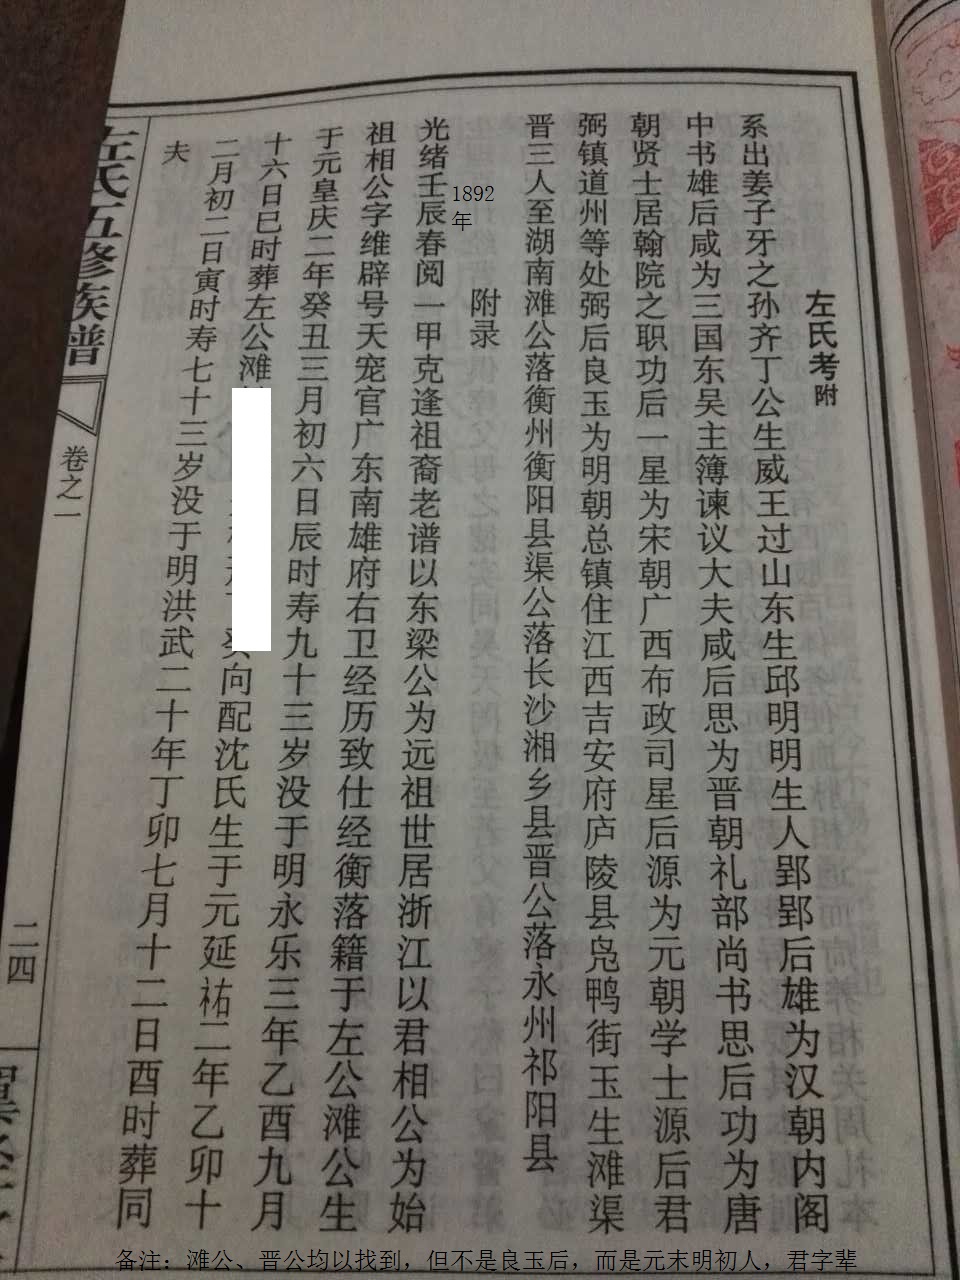 左氏考附
系出姜子牙之孙齐丁公生威王过山东生邱明明生人郢郢后雄为汉朝内阁
中书雄后咸为三国东吴主簿谏议大夫咸后思为晋朝礼部尚书思后功为唐
朝贤士居翰院之职功后一星为宋朝广西布政司星后源为元朝学士源后君
弼镇道州等处弼后良玉为明朝总镇住江西吉安府庐陵县凫鸭街玉生滩渠
晋三人至湖南滩公落衡州衡阳县渠公落长沙湘乡县晋公落永州祁阳县
附录
1892
年
光绪壬辰春阅一甲克逢祖裔老谱以东梁公为远祖世居浙江以君相公为始
祖相公字维辟号天宠官广东南雄府右卫经历致仕经衡落籍于左公滩公生
于元皇庆二年癸丑三月初六日辰时寿九十三岁没于明永乐三年乙酉九月
十六日巳时葬左公滩
向配沈氏生于元延祐二年乙卯十
二月初二日寅时寿七十三岁没于明洪武二十年丁卯七月十二日酉时葬同
夫
左氏五修族谱
卷之一
二四
备注：滩公、晋公均以找到，但不是良玉后，而是元末明初人，君字辈